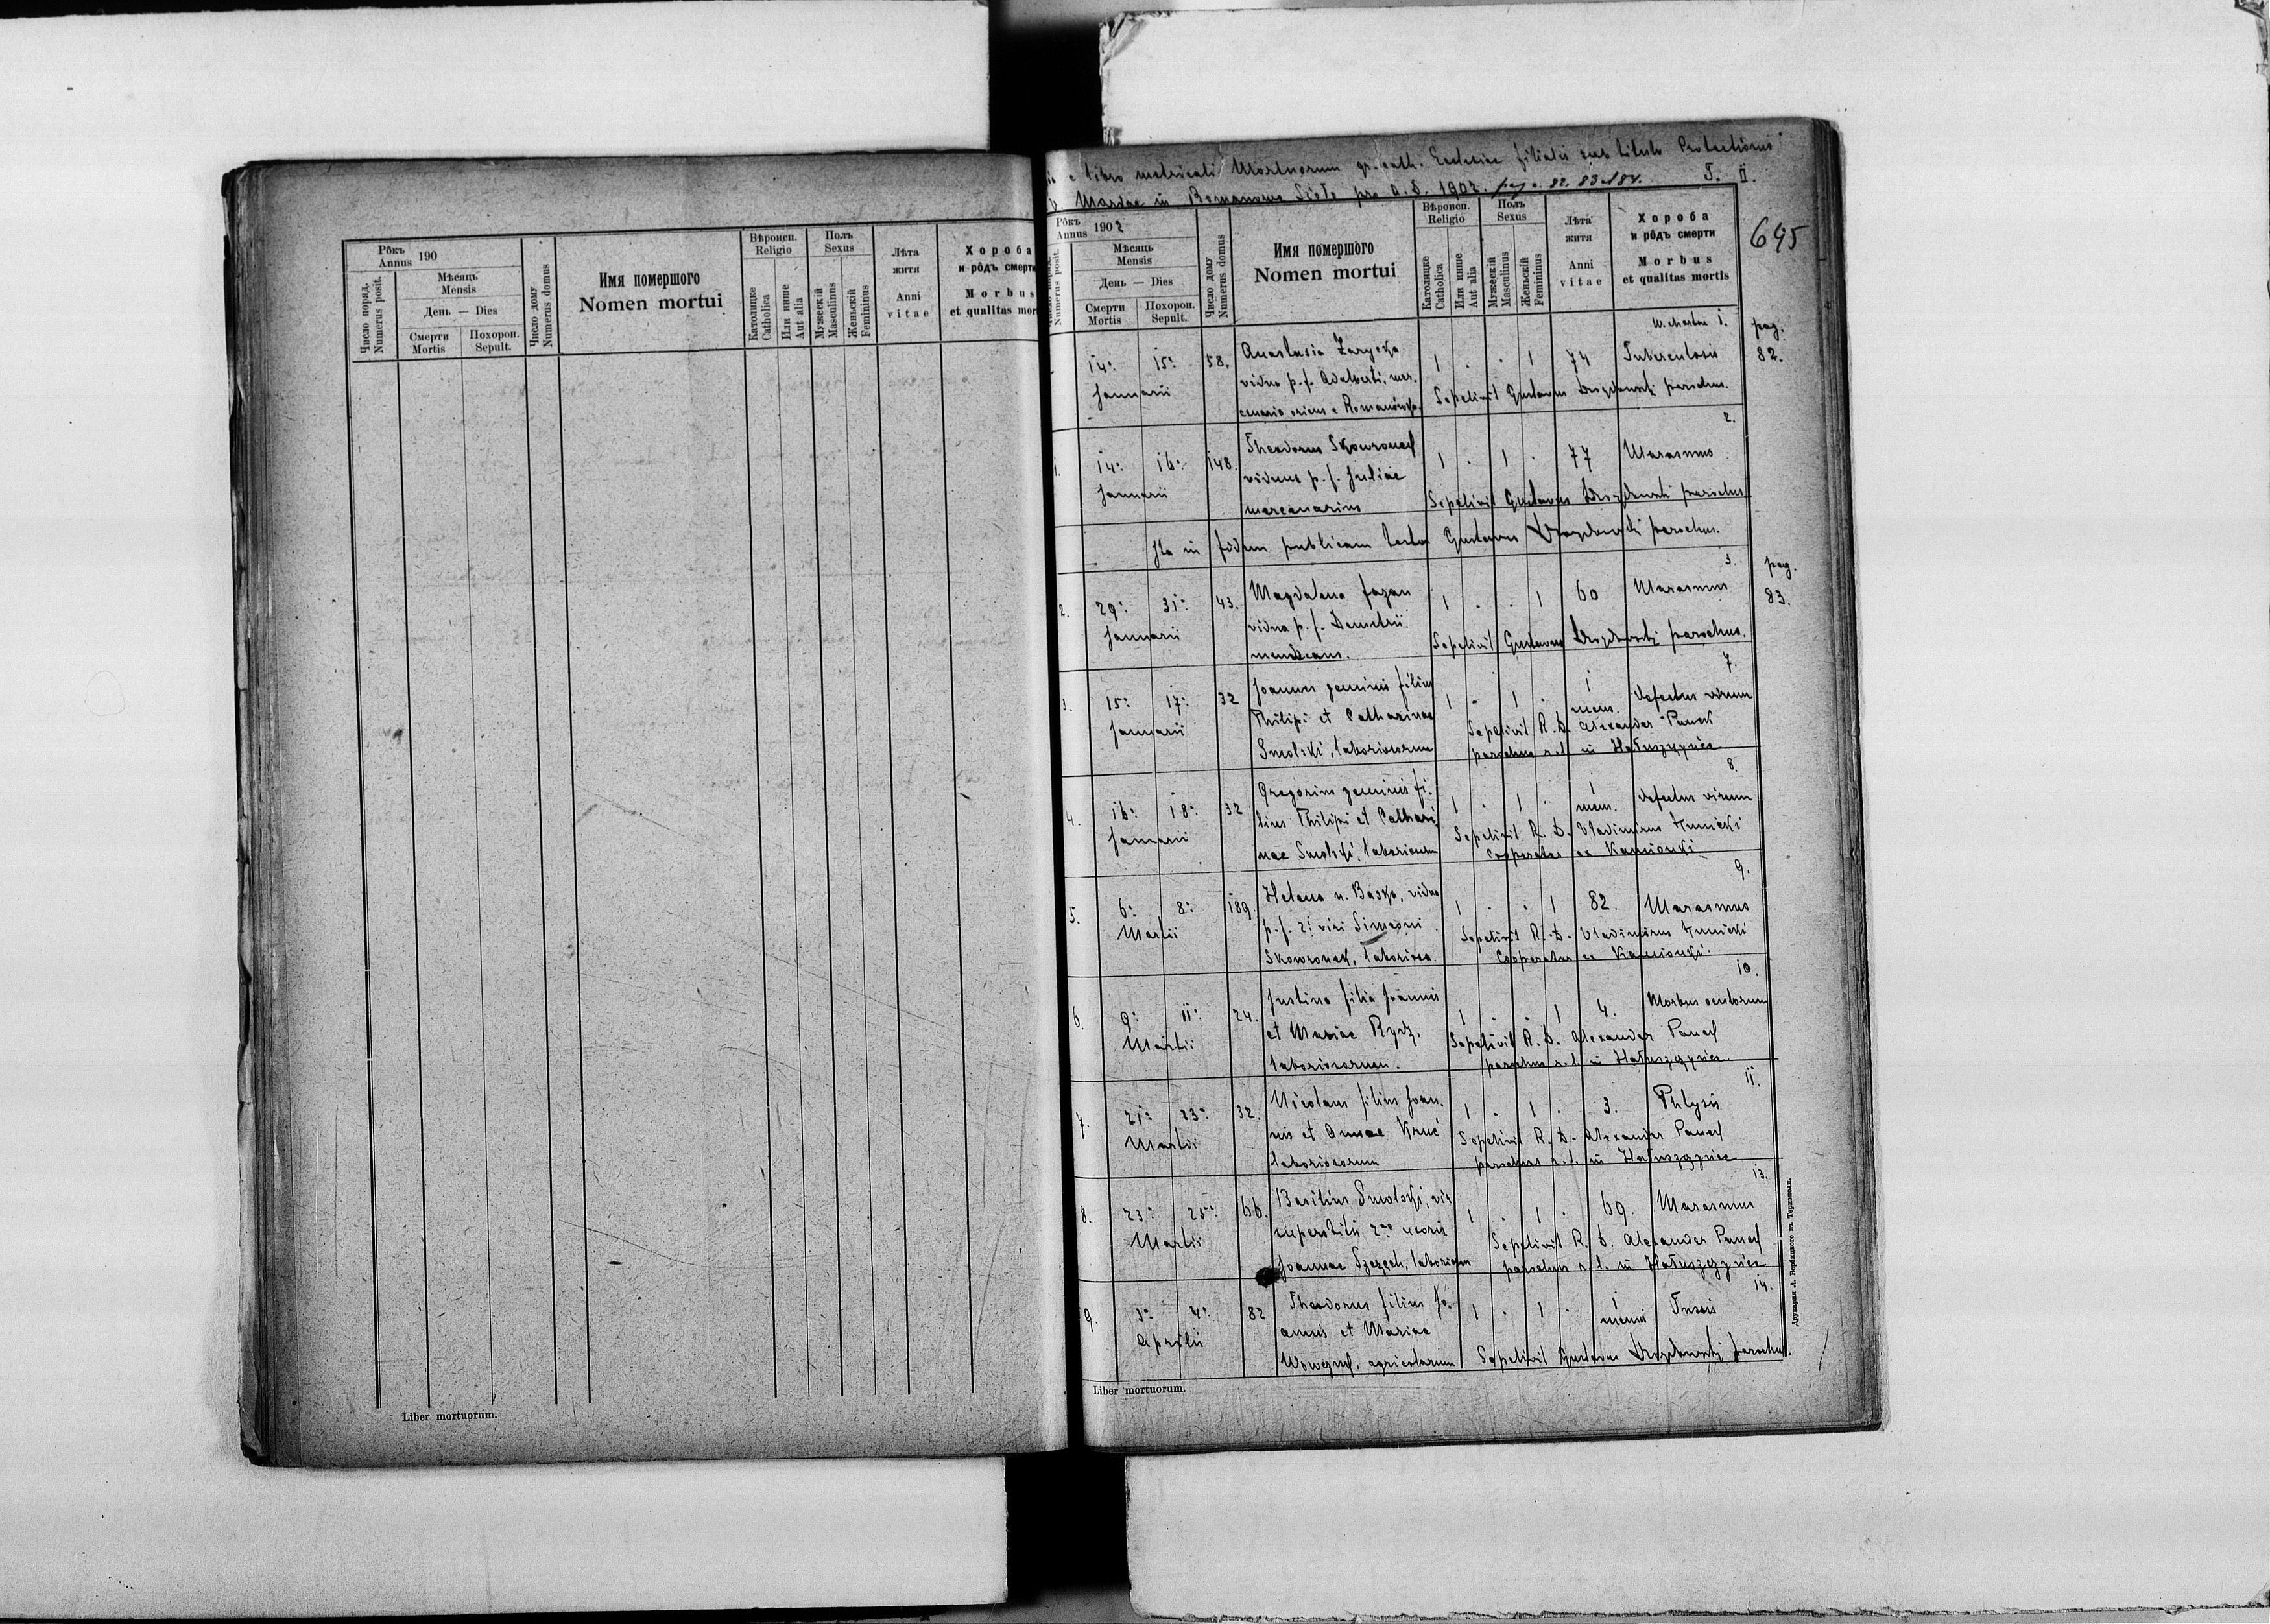 Рôкъ
Annus 190
Число поряд.
Numerus posit.
Мѣсяць
Mensis
День — Dies
Смерти
Mortis
Похорон.
Sepult.
Число дому
Numerus domus
Имя помершого
Nomen mortui
Вѣроисп.
Religio
Католицке
Catholica
Или инше
Aut alia
Полъ
Sexus
Мужескій
Masculinus
Женьскій
Femininus
Лѣта
житя
Anni
vitae
Хороба
и рôдъ смерти
Morbus
et qualitas mor
Liber mortuorum.
e libro metricali Mortuorum gr. cath. Ecclesiae filialis sub titulo Protectionis
b. Mariae in Romanowo Sioło pro a. d. 1902. pag. 82, 83 et 84. T. II.
695
Рôкъ
Annus 1902
Numerus posit.
Мѣсяць
Mensis
День — Dies
Смерти
Mortis
Похорон.
Sepult.
Число дому
Numerus domus
Имя помершого
Nomen mortui
Вѣроисп.
Religio
Католицке
Catholica
Или инше
Aut alia
Полъ
Sexus
Мужескій
Masculinus
Женьскій
Femininus
Лѣта
житя
Anni
vitae
Хороба
и рôдъ смерти
Morbus
et qualitas mortis
1.
pag.
82.
14. 15. 58. Anastasia Zarycka 1 . . 1 74 Tuberculosis
Januarii vidua p. f. Adalberti, mer-
cenaria oriens e Romanówka.
Sepelivit Gustavus Drozdowski parochus.
2.
1. 14. 16. 148. Theodorus Skowronek 1 . 1 . 77 Marasmus
Januarii viduus p. f. Juliae
mercenarius
Sepelivit Gustavus Drozdowski parochus.
Ita in fidem publicam testor Gustavus Drozdowski parochus.
3.
pag.
83.
2. 29. 31. 43. Magdalena Fazan 1 . . 1 60 Marasmus
Januarii vidua p. f. Demetrii
mendicans.
Sepelivit Gustavus Drozdowski parochus.
7.
3. 15. 17. 32 Joannes geminus filius 1 . 1 . 1 mens. defectus virium
Januarii Philipi et Catharinae
Smolski, laboriosorum
Sepelivit R. D. Alexander Paneck
parochus r. l. in Hałuszczyńce
8.
4. 16. 18. 32 Gregorius geminus fi-
Januarii lius Philipi et Cathari-
nae Smolski, laboriosorum
1 . 1 . 1 mens. defectus virium
Sepelivit R. D. Vladimirus Hunicki
Cooperator ex Kamionki
9.
5. 6. 8. 189. Helena n. Basko, vidua 1 . . 1 82. Marasmus
Martii p. f. 2i viri Simeoni
Skowronek, laboriosa.
Sepelivit R. D. Vladimirus Hunicki
Cooperator ex Kamionki
10.
6. 9. 11. 24. Justina filia Joannis 1 . . 1 4. Morbus oculorum
Martii et Mariae Rydz,
laboriosorum.
Sepelivit R. D. Alexander Paneck
parochus r. l. in Hałuszczyńce
11.
7. 21. 23. 32. Nicolaus filius Joan- 1 . 1 . 3. Phtysis
Martii nis et Annae Kruć
laboriosorum
Sepelivit R. D. Alexander Paneck
parochus r. l. in Hałuszczyńce
13.
8. 23. 25. 66. Basilius Smolski, vir 1 . 1 . 69. Marasmus
Martii superstitis 2ae uxoris
Joannae Szczęch, laboriosus
Sepelivit R. D. Alexander Paneck
parochus r. l. in Hałuszczyńce
14.
9. 3. 4. 82 Theodorus filius Jo- 1 . 1 . 1 mensis Tussis
Aprilis annis et Mariae
agricolarum
Sepelivit Gustavus Drozdowski parochus.
Liber mortuorum.
Друкарня А. Вербицкого въ Тернополи.